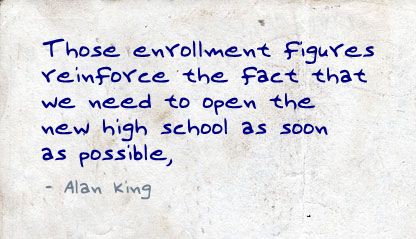 Those enrollment figures
reinforce the fact that
we need to open the
new high school as soon
as possible,
- Alan King